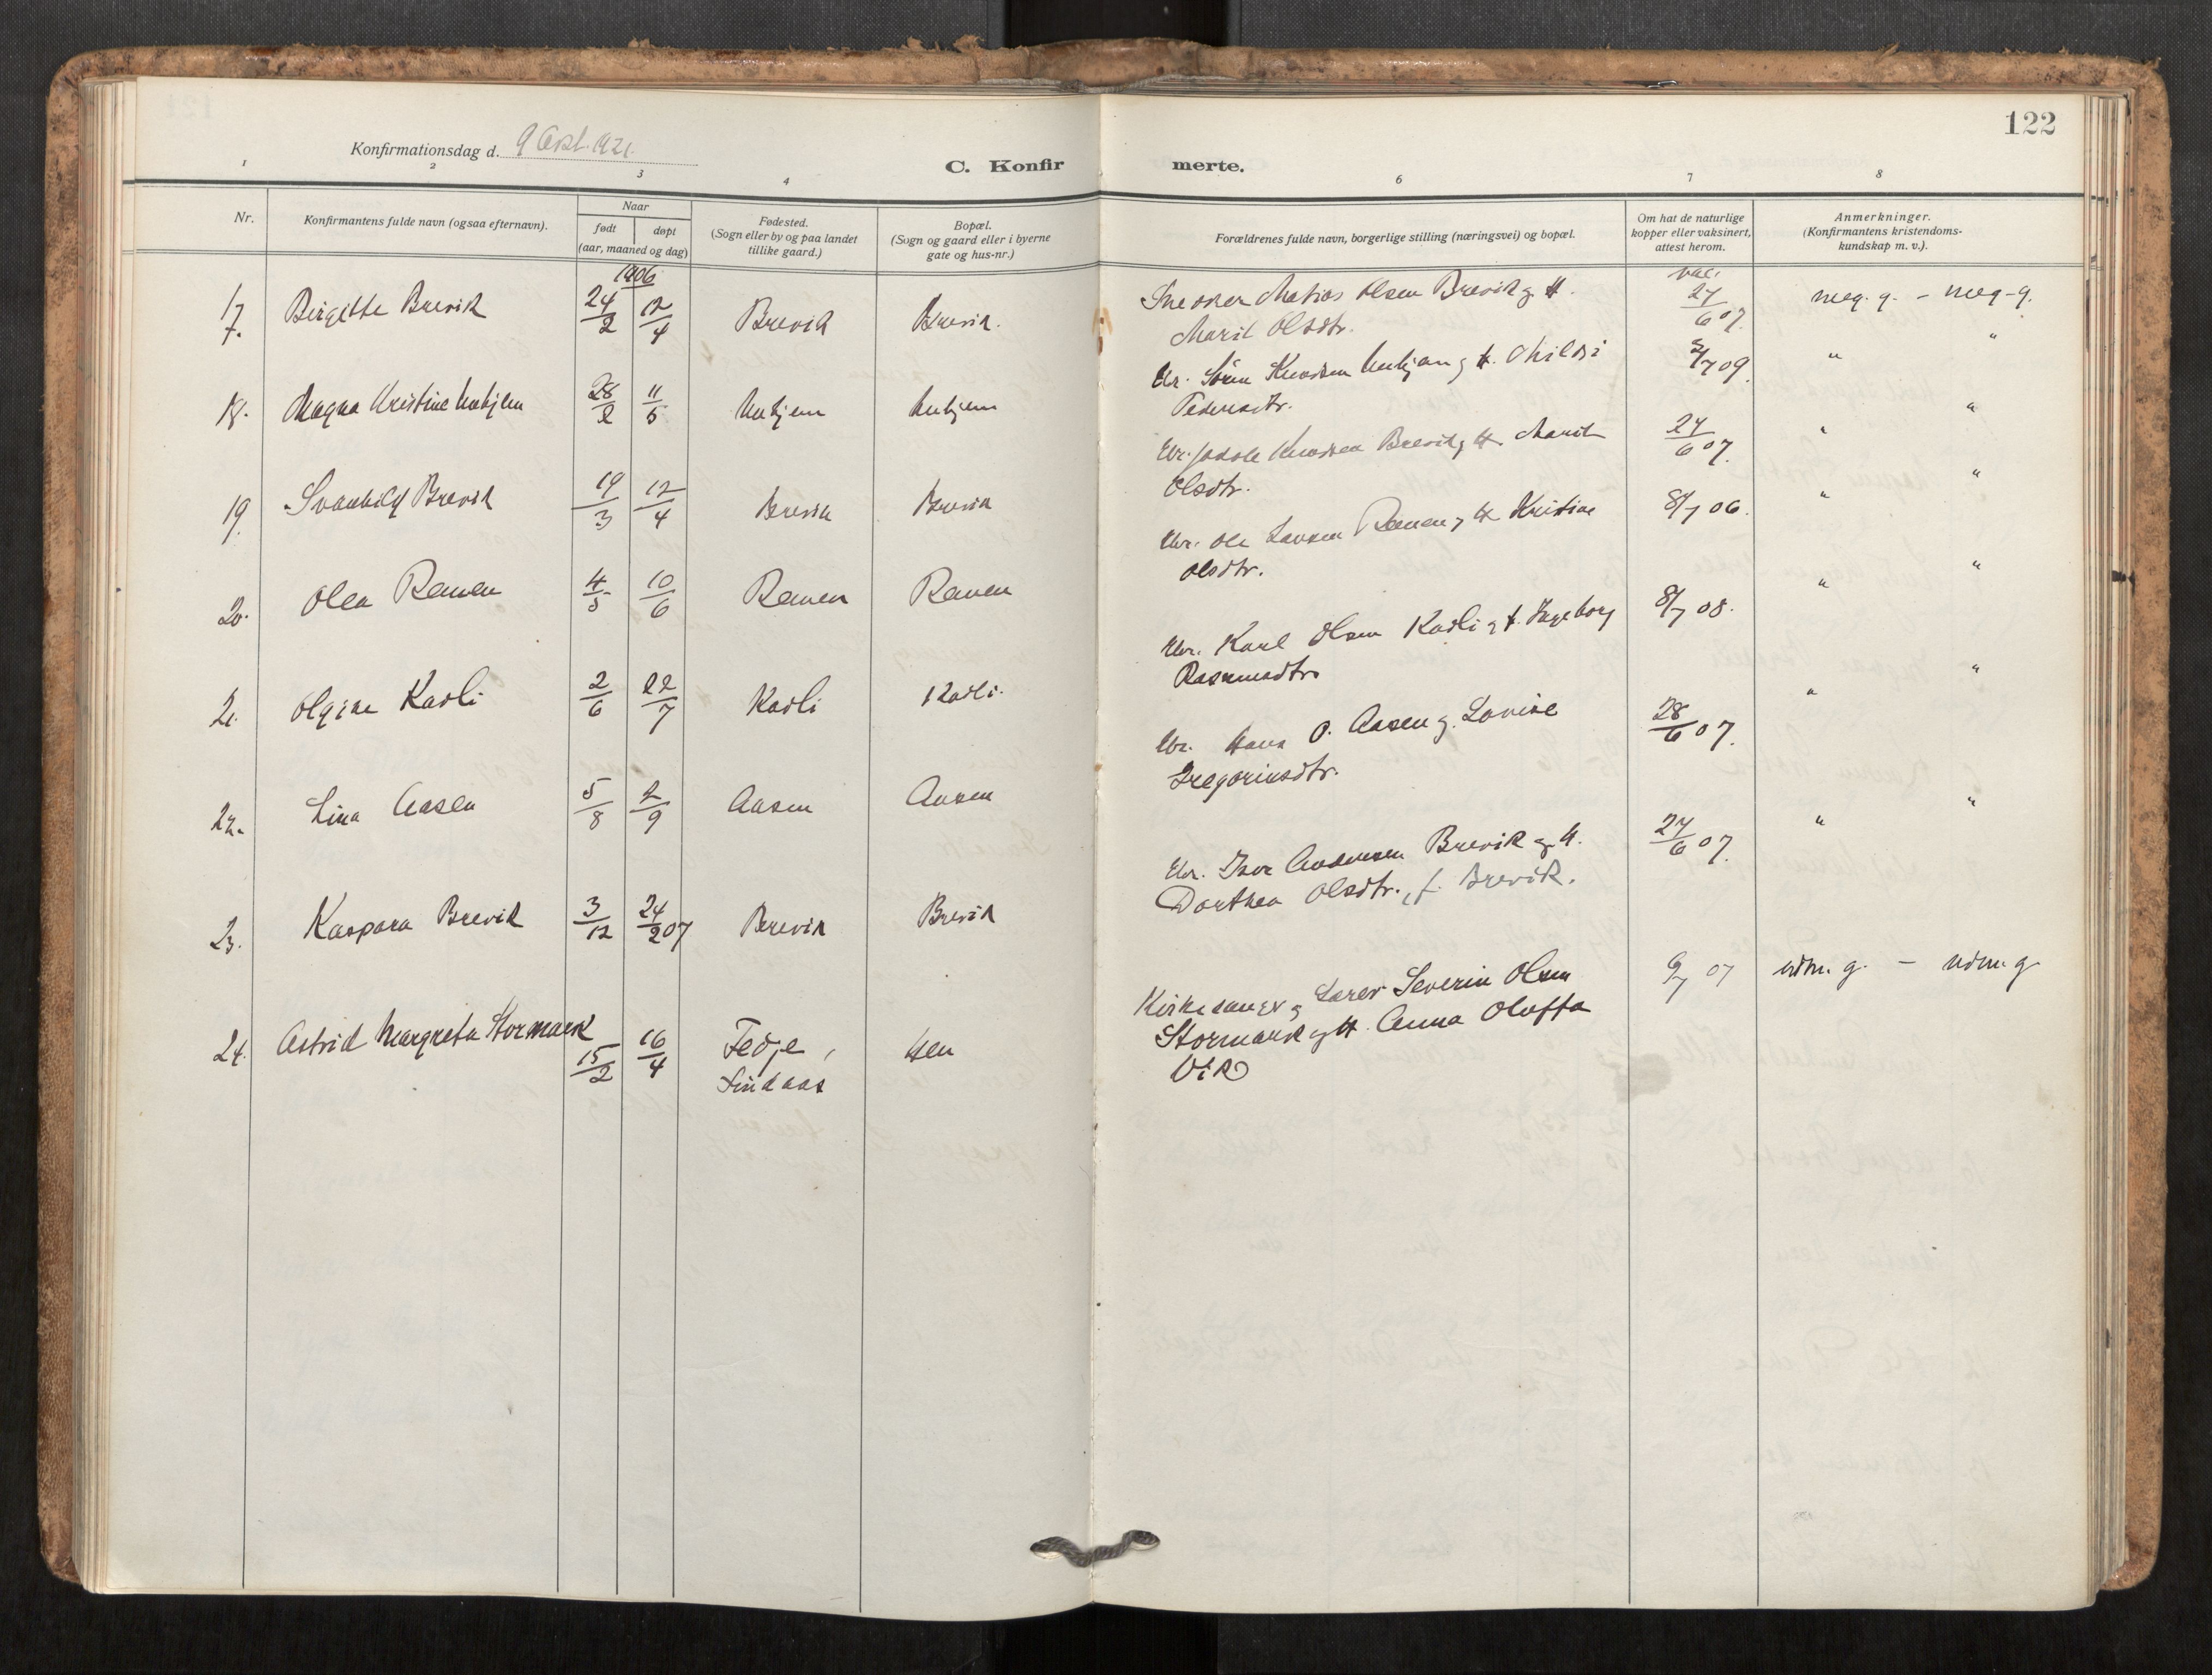 122
Konfirmationsdag d. 9 Okt. 1921.
C. Konfirmerte.
1 2 3 4 6 7 8
Nr.
Konfirmantens fulde navn (ogsaa efternavn).
Naar
født døpt
(aar, maaned og dag)
Fødested.
(Sogn eller by og paa landet
tillike gaard.)
Bopæl.
(Sogn og gaard eller i byerne
gate og hus-nr.)
Forældrenes fulde navn, borgerlige stilling (næringsvei) og bopæl.
Om hat de naturlige
kopper eller vaksinert,
attest herom.
Anmerkninger.
(Konfirmantens kristendoms-
kundskap m. v.).
1906
17. Birgitte Brevik 24/2 12/4 Brevik Brevik. Snedker Matias Olsen Brevik og H. vac. 24/6 07. meg. g. - meg. g.
Marit Olsdtr.
18. Magna Kristine 28/2 11/5 Søren Knudsen 09. " "
Pedersdtr.
19. Svanhild Brevik 19/3 12/4 Brevik Brevik Knudsen Brevik og H. Marit 24/6 07. " "
Olsdtr.
20. Olea Remen 4/5 10/6 Remen Remen Ole Larsen Remen og H. Kristine 8/7 06. " "
Olsdtr.
21. Olgine Kadli 2/6 22/7 Kadli Kadli. Karl Olsen Kadli og H. Ingeborg 8/7 08. " "
Rasmusdtr.
22. Lina Aasen 5/8 2/9 Aasen Aasen Hans O. Aasen og Lovise 28/6 07. " "
Gregoriusdtr.
23. Kaspara Brevik 3/12 24/2 07 Brevik Brevik Iver Andersen Brevik og H. 24/6 07. " "
Dorthea Olsdtr., f. Brevik.
24. Astrid Margreta Stormark 15/2 16/4 Fedje, Hen Kirkesanger og Lærer Severin Olsen 07 udm. g. - udm. g.
Lindaas Stormark og H. Anna Oluffa
Vik